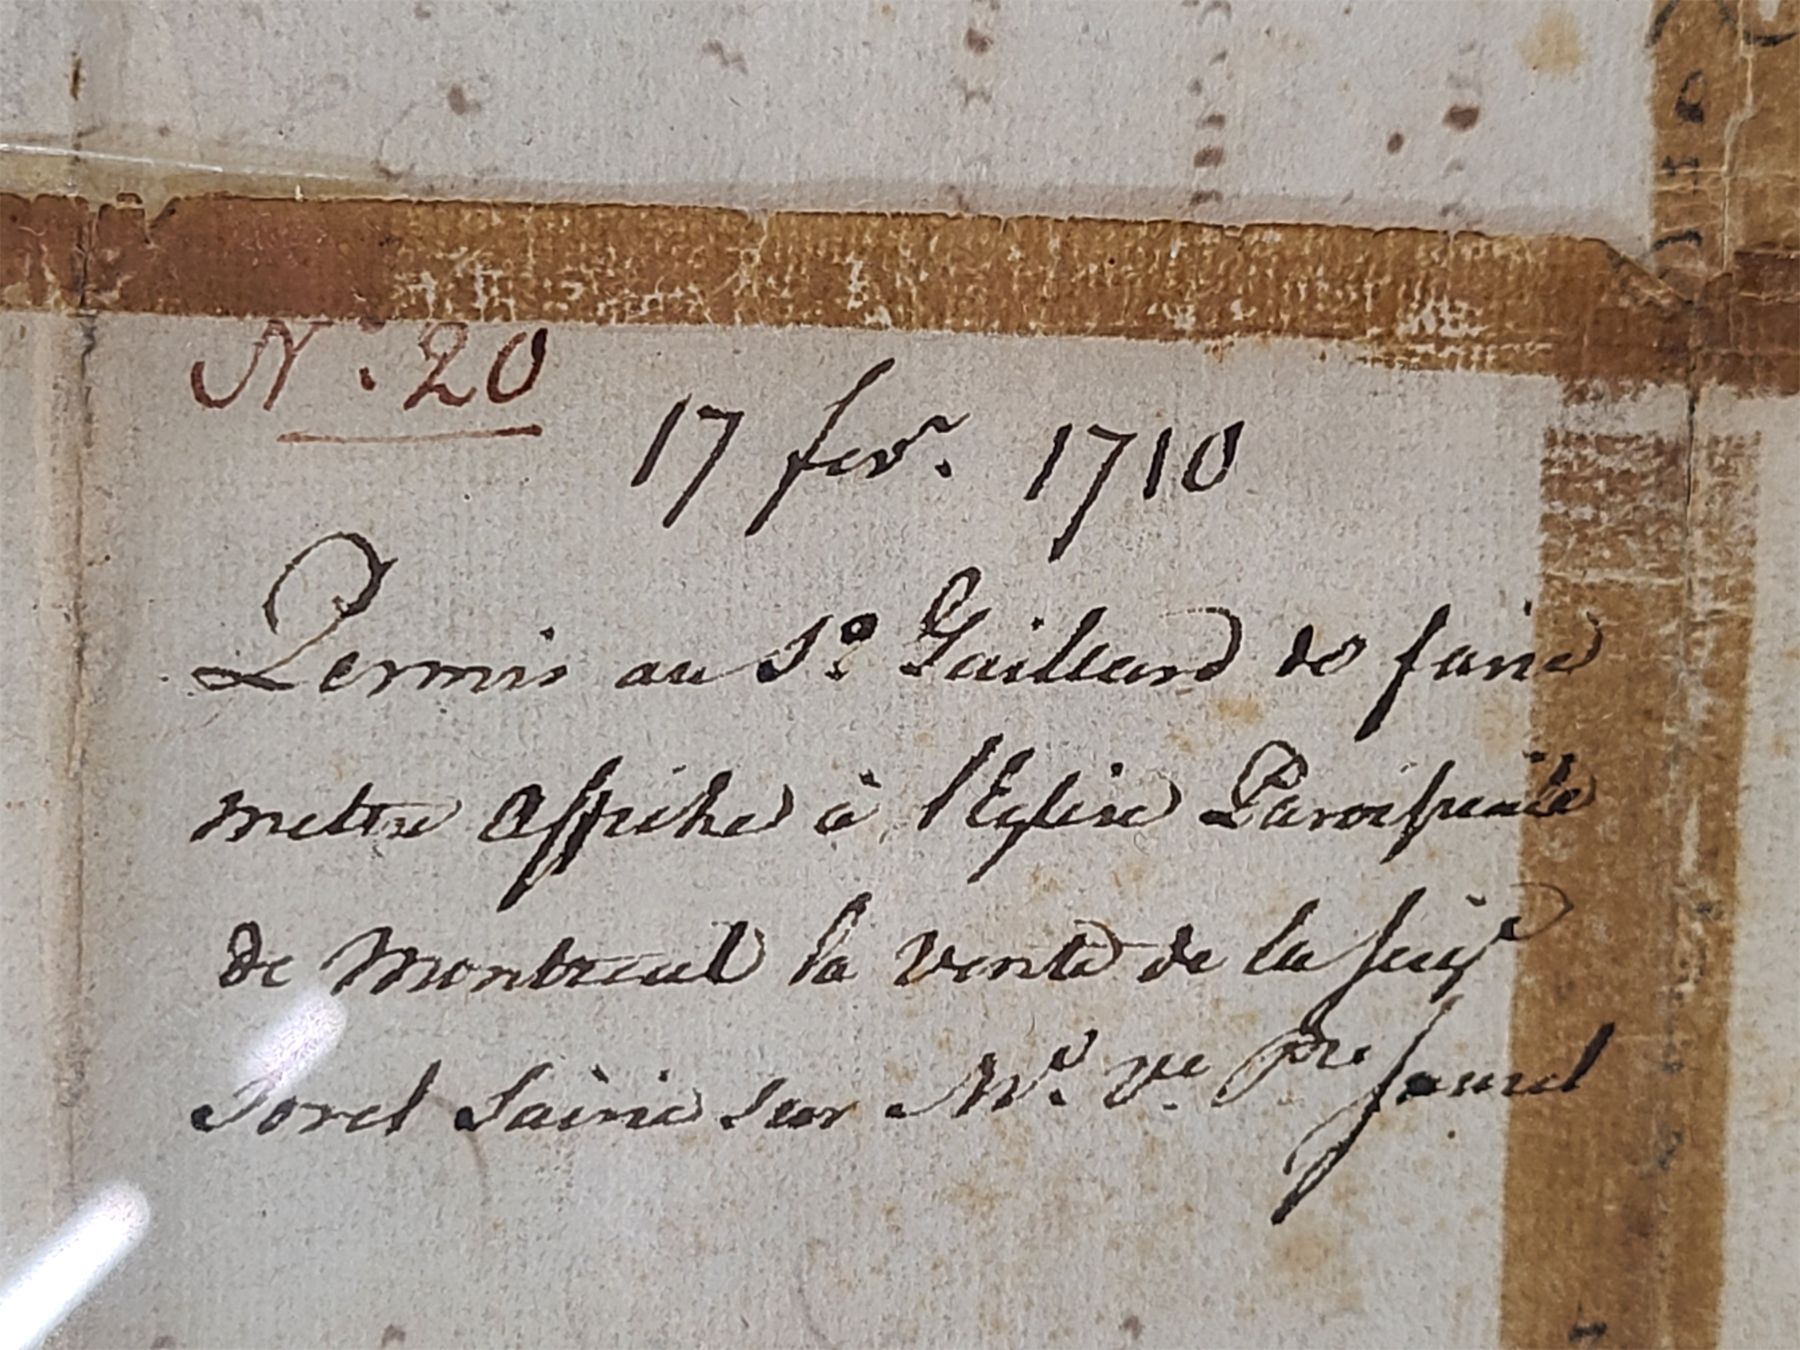 N.º 20
17 fevr. 1710
Permis au Sr. Gaillard de faire
mettre affiche à l'Eglise Paroissialle
de Montreal la vente de la seigr
Sorel Saisie sur Mr. Ve. Pre Saurel